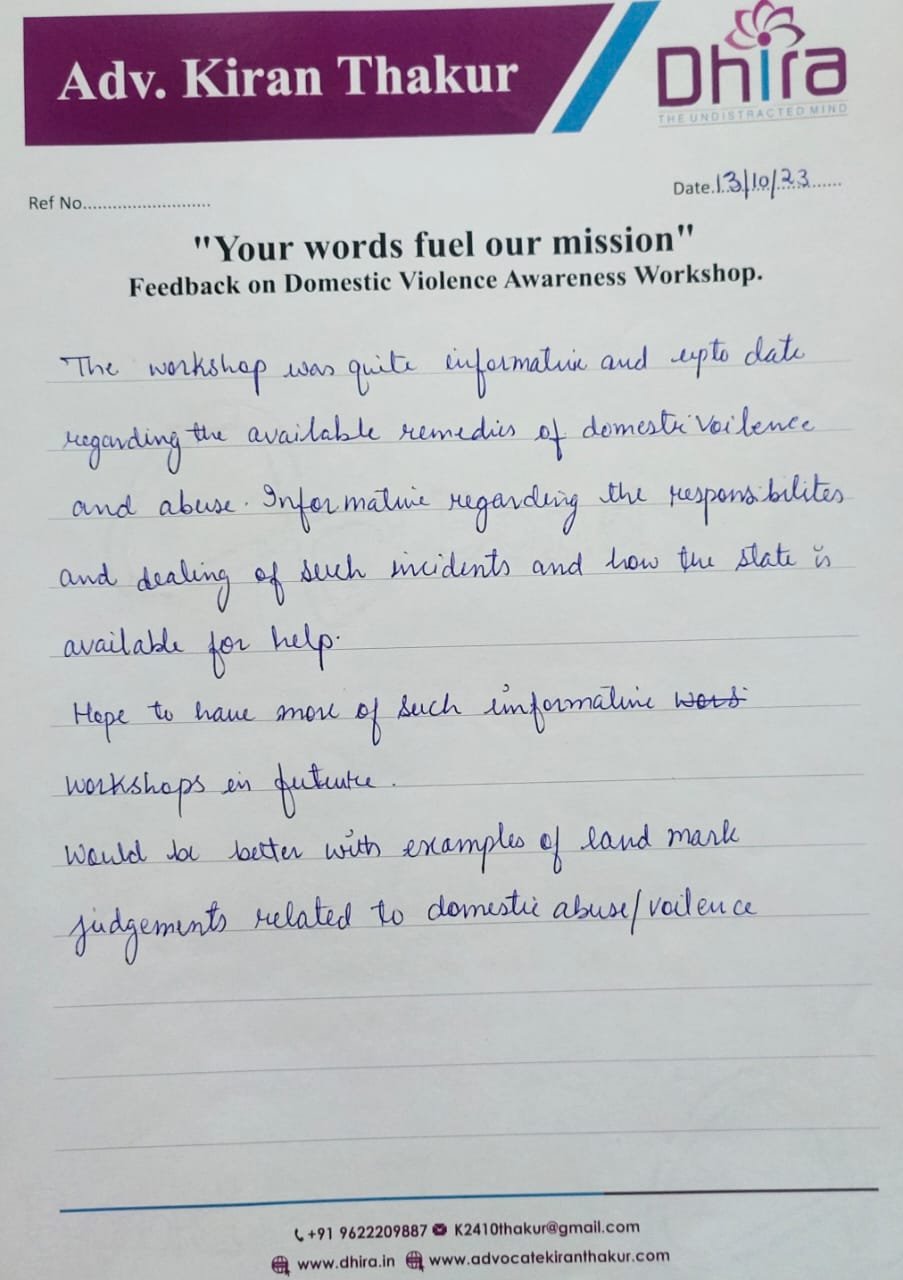 Adv. Kiran Thakur
Dhira
THE UNDISTRACTED MIND
Ref No..........................
Date.13/10/23......
"Your words fuel our mission"
Feedback on Domestic Violence Awareness Workshop.
The workshop was quite informative and upto date
regarding the available remedies of domestic voilence
and abuse. Informative regarding the responsibilites
and dealing of such incidents and how the state is
available for help.
Hope to have more of such informative wors
workshops in future.
Would be better with examples of land mark
judgements related to domestic abuse/voilence
+91 9622209887 K2410thakur@gmail.com
www.dhira.in www.advocatekiranthakur.com